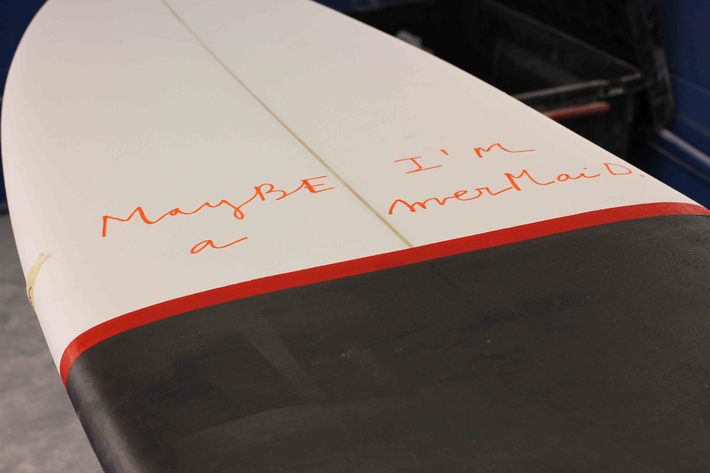 MayBE I'M
a merMaiD.